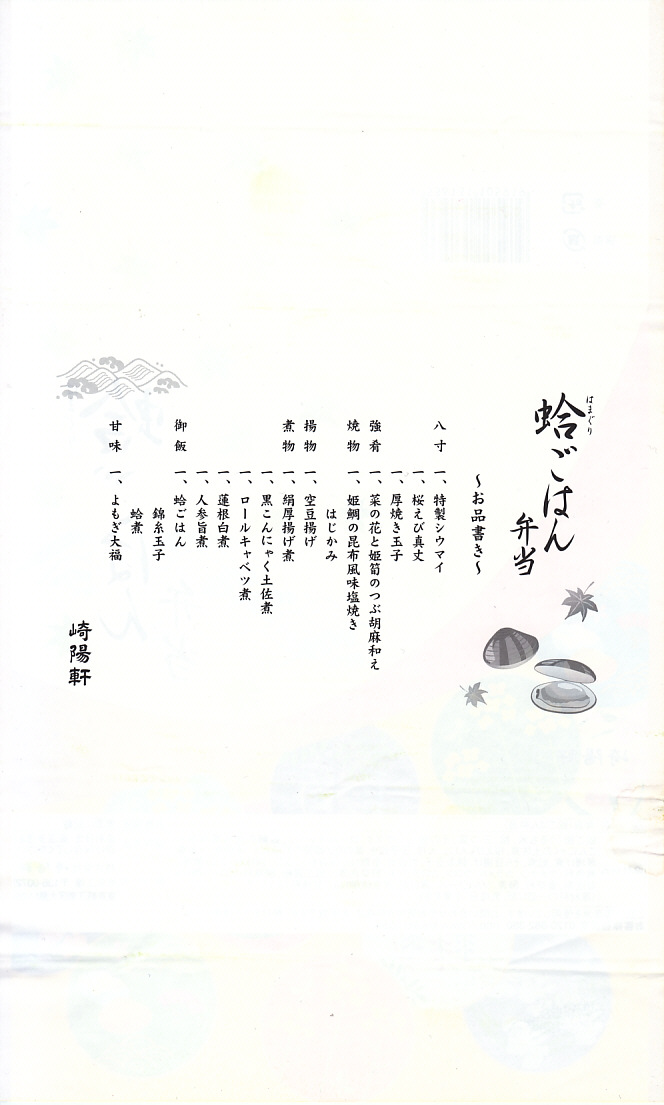 はまぐり
蛤ごはん
弁当
～お品書き～
八寸 一、特製シウマイ
一、桜えび真丈
一、厚焼き玉子
強肴 一、菜の花と姫筍のつぶ胡麻和え
焼物 一、姫鯛の昆布風味塩焼き
はじかみ
揚物 一、空豆揚げ
煮物 一、絹厚揚げ煮
一、黒こんにゃく土佐煮
一、ロールキャベツ煮
一、蓮根白煮
一、人参旨煮
御飯 一、蛤ごはん
錦糸玉子
蛤煮
甘味 一、よもぎ大福
崎陽軒